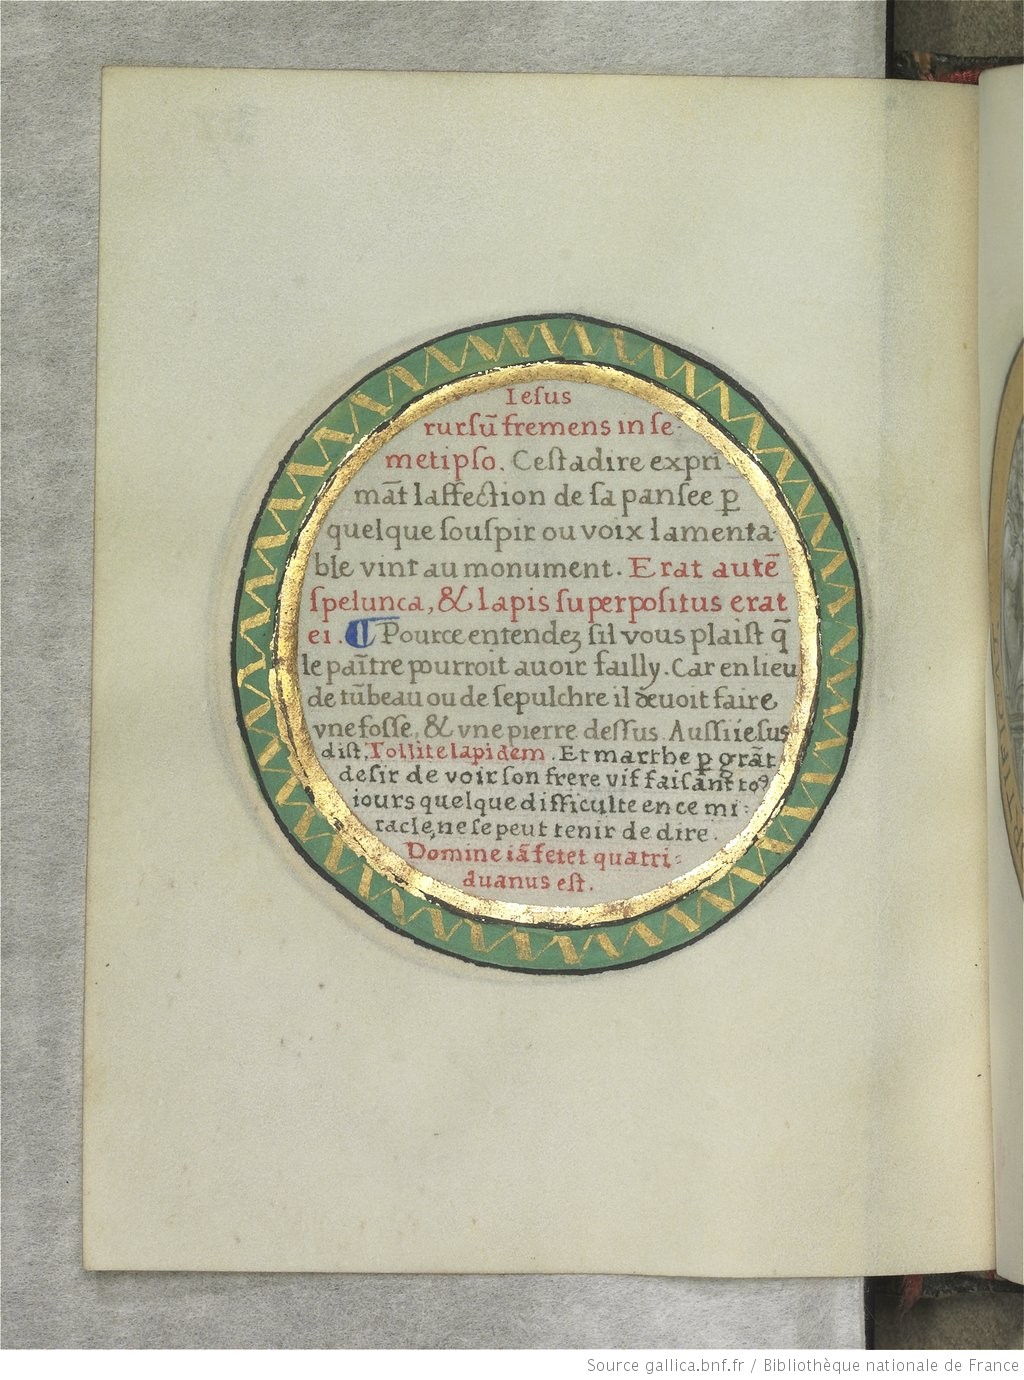 Iesus
rursũ fremens in se-
metipso. Cestadire expri-
mãt laffection de sa pansee p̱
quelque souspir ou voix lamenta-
ble vint au monument. Erat autẽ
spelunca, & lapis superpositus erat
ei. ¶ Pource entendez sil vous plaist q̃
le paĩtre pourroit auoir failly. Car en lieu
de tũbeau ou de sepulchre il deuoit faire
vne fosse, & vne pierre dessus. Aussi iesus
dist, Tollite lapidem. Et marthe p̱ grãt
desir de voir son frere vif faisant toꝰ
iours quelque difficulte en ce mi:
racle, ne se peut tenir de dire.
Domine iã fetet quatri:
duanus est.
Source gallica.bnf.fr / Bibliothèque nationale de France